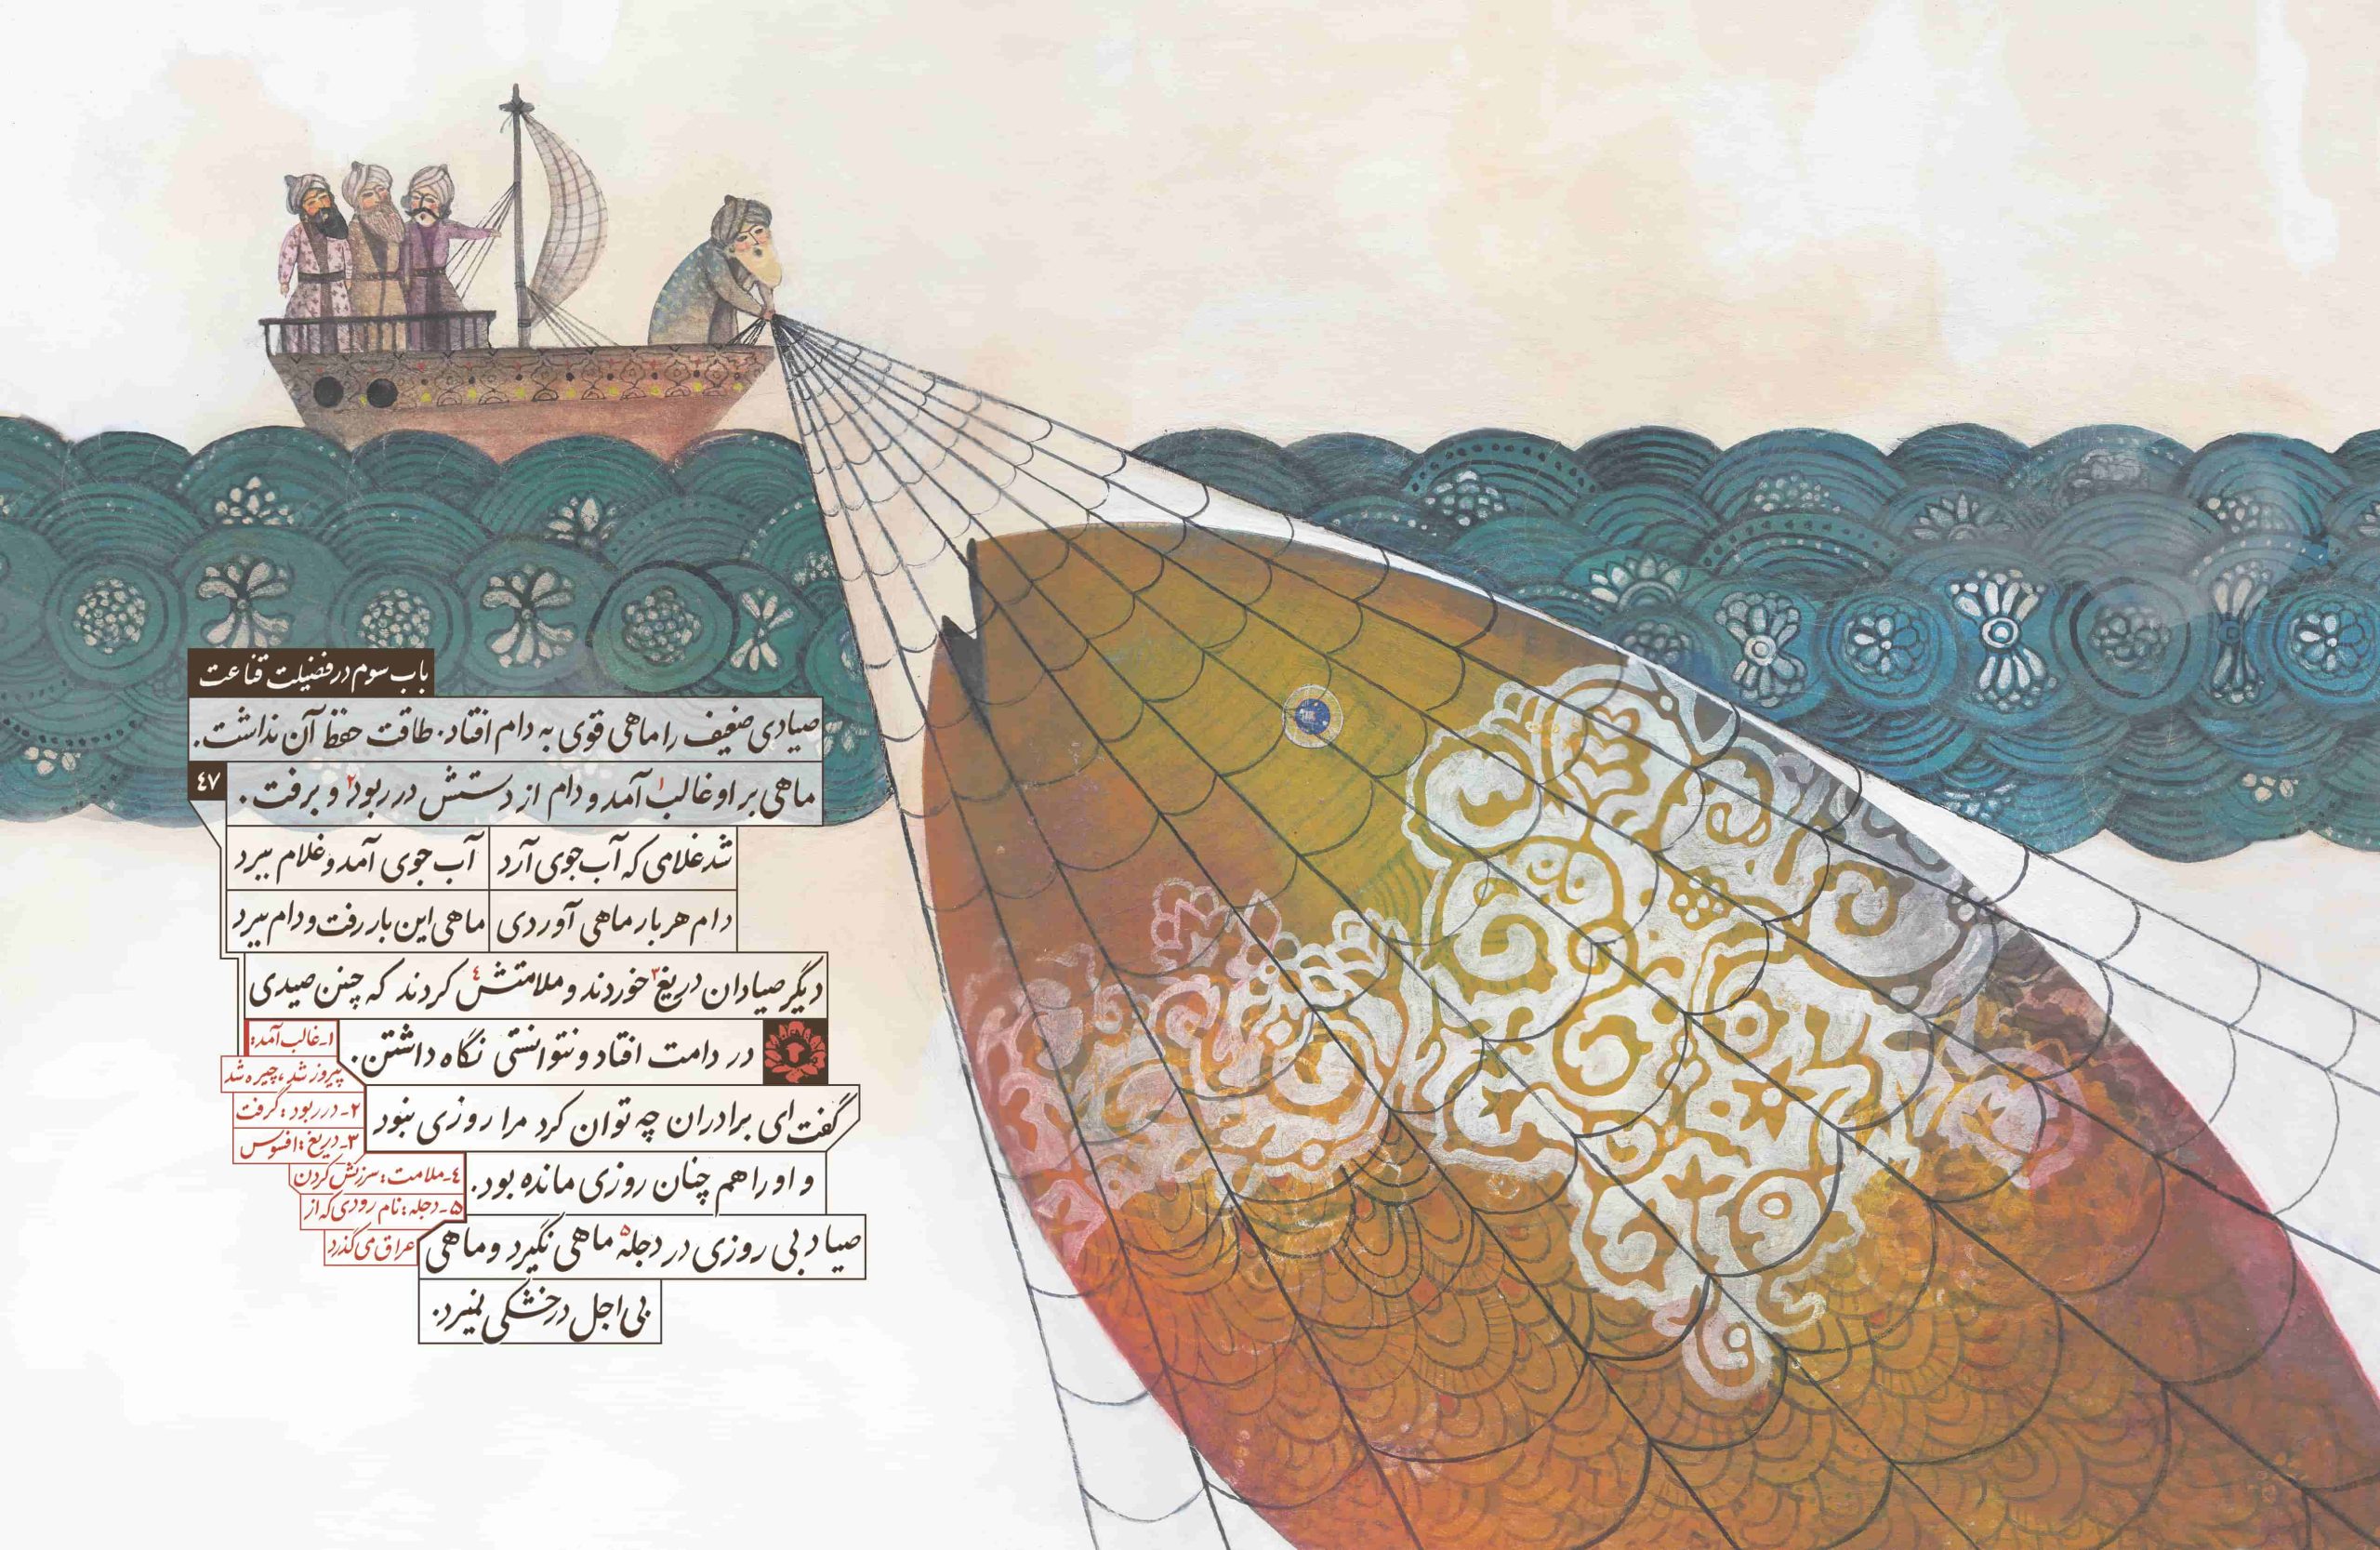 باب سوم در فضیلت قناعت
صیادی ضعیف را ماهی قوی به دام افتاد. طاقت حفظ آن نداشت.
۴۷
ماهی بر او غالب۱ آمد و دام از دستش در ربود۲ و برفت.
شد غلامی که آب جوی آرد آب جوی آمد و غلام ببرد
دام هر بار ماهی آوردی ماهی این بار رفت و دام ببرد
دیگر صیادان دریغ۳ خوردند و ملامتش۴ کردند که چنین صیدی
در دامت افتاد و نتوانستی نگاه داشتن.
گفت ای برادران چه توان کرد مرا روزی نبود
و او را هم چنان روزی مانده بود.
صیاد بی روزی در دجله۵ ماهی نگیرد و ماهی
بی اجل در خشکی نمیرد.
۱-غالب آمد:
پیروز شد، چیره شد
۲- در ربود: گرفت
۳- دریغ: افسوس
۴-ملامت: سرزنش کردن
۵-دجله: نام رودی که از
عراق می گذرد